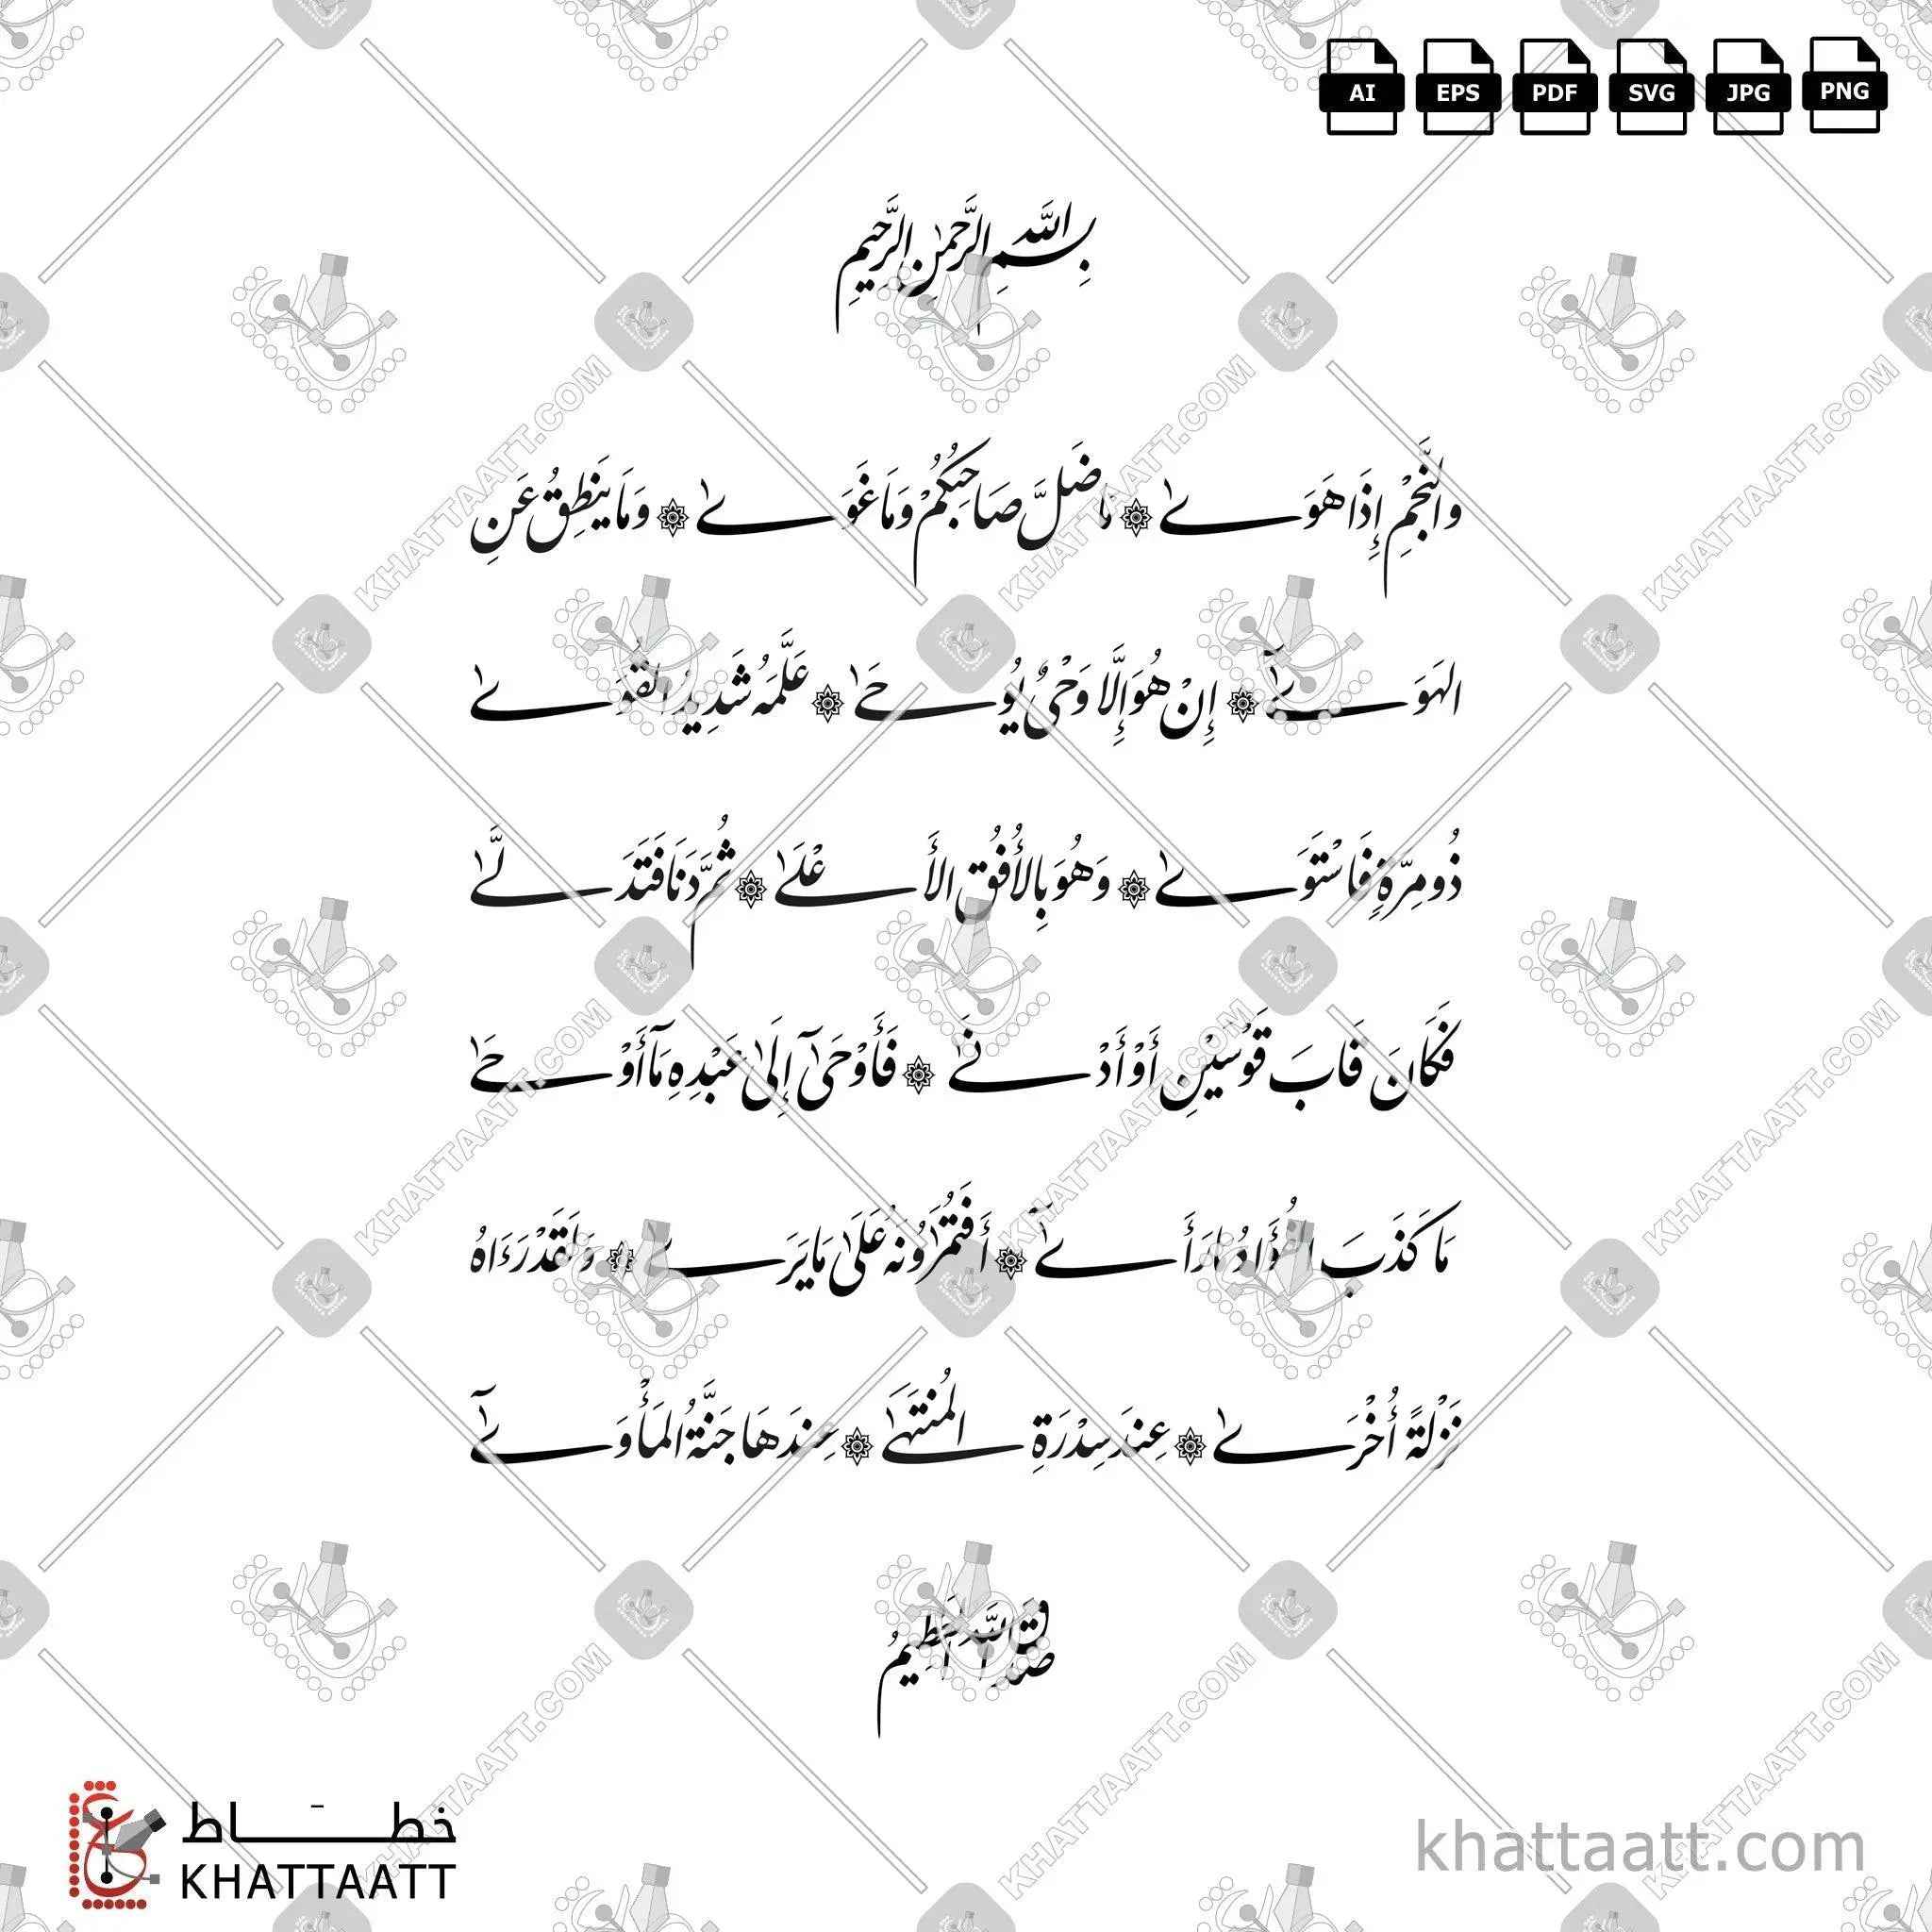 AI EPS PDF SVG JPG PNG
بِسْمِ اللَّهِ الرَّحْمٰنِ الرَّحِيمِ
وَالنَّجْمِ إِذَا هَوَىٰ ۞ مَا ضَلَّ صَاحِبُكُمْ وَمَا غَوَىٰ ۞ وَمَا يَنطِقُ عَنِ
الهَوَىٰٓ ۞ إِنْ هُوَ إِلَّا وَحْىٌ يُوحَىٰ ۞ عَلَّمَهُ شَدِيدُ القُوَىٰ
ذُو مِرَّةٍ فَاسْتَوَىٰ ۞ وَهُوَ بِالأُفُقِ الأَعْلَىٰ ۞ ثُمَّ دَنَا فَتَدَلَّىٰ
فَكَانَ قَابَ قَوْسَيْنِ أَوْ أَدْنَىٰ ۞ فَأَوْحَىٰٓ إِلَىٰ عَبْدِهِ مَآ أَوْحَىٰ
مَا كَذَبَ الفُؤَادُ مَا رَأَىٰٓ ۞ أَفَتُمَٰرُونَهُ عَلَىٰ مَا يَرَىٰ ۞ وَلَقَدْ رَءَاهُ
نَزْلَةً أُخْرَىٰ ۞ عِندَ سِدْرَةِ المُنتَهَىٰ ۞ عِندَهَا جَنَّةُ المَأْوَىٰٓ
صَدَقَ اللَّهُ العَظِيمُ
خطاط
KHATTAATT
khattaatt.com